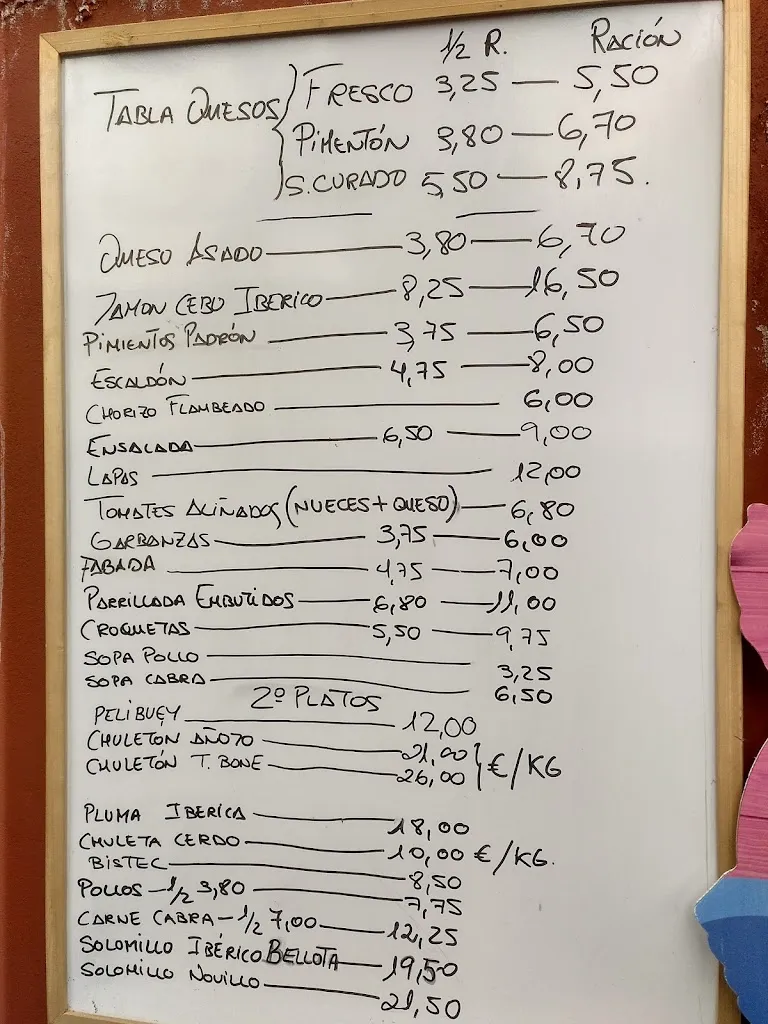 1/2 R. RACIÓN
TABLA QUESOS FRESCO 3,25 — 5,50
PIMENTÓN 3,80 — 6,70
S.CURADO 5,50 — 8,75.
QUESO ASADO — 3,80 — 6,70
JAMON CEBO IBERICO — 8,25 — 16,50
PIMIENTOS PADRÓN — 3,75 — 6,50
ESCALDÓN — 4,75 — 8,00
CHORIZO FLAMBEADO — 6,00
ENSALADA — 6,50 — 9,00
LAPAS — 12,00
TOMATES ALIÑADOS (NUECES + QUESO) — 6,80
GARBANZAS — 3,75 — 6,00
FABADA — 4,75 — 7,00
PARRILLADA EMBUTIDOS — 6,80 — 11,00
CROQUETAS — 5,50 — 9,75
SOPA POLLO — 3,25
SOPA CABRA — 6,50
2º PLATOS
PELIBUEY — 12,00
CHULETON AÑOJO — 21,00
CHULETÓN T. BONE — 26,00 } €/KG
PLUMA IBERICA — 18,00
CHULETA CERDO — 10,00 €/KG.
BISTEC — 8,50
POLLOS — 1/2 3,80 — 7,75
CARNE CABRA — 1/2 7,00 — 12,25
SOLOMILLO IBÉRICO BELLOTA — 19,50
SOLOMILLO NOVILLO — 21,50